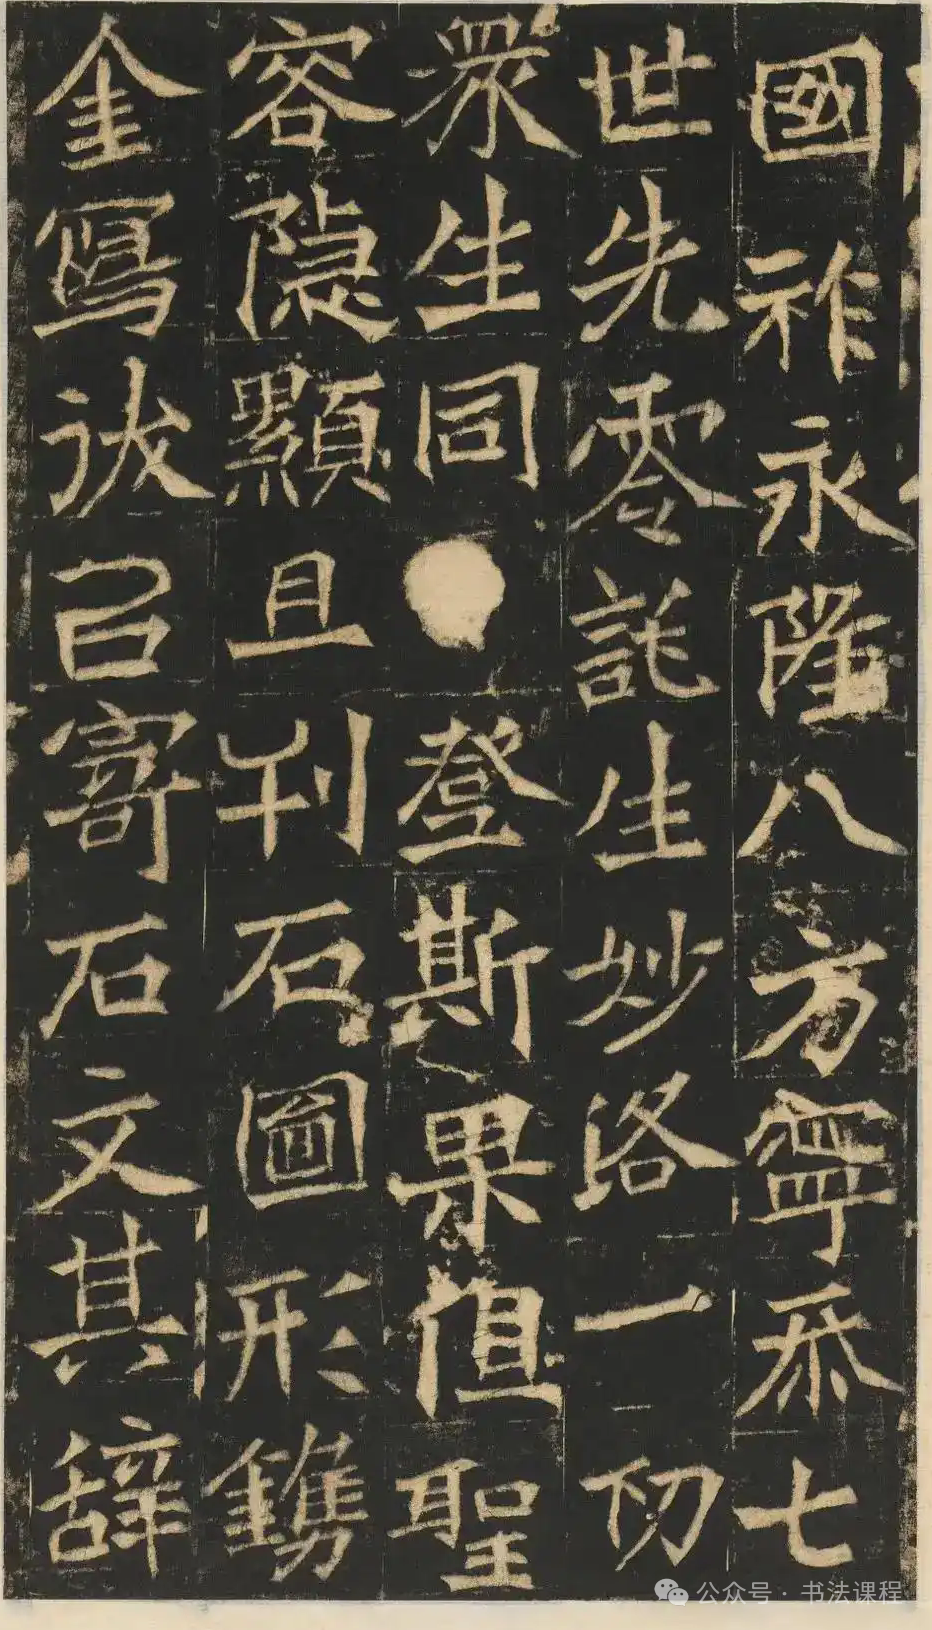 國祚永隆八方寧泰七
世先零託生妙洛一切
眾生同登斯果值聖
容隱顯且刊石圖形鐫
金寫召寄石文其辭
公众号 · 书法课程